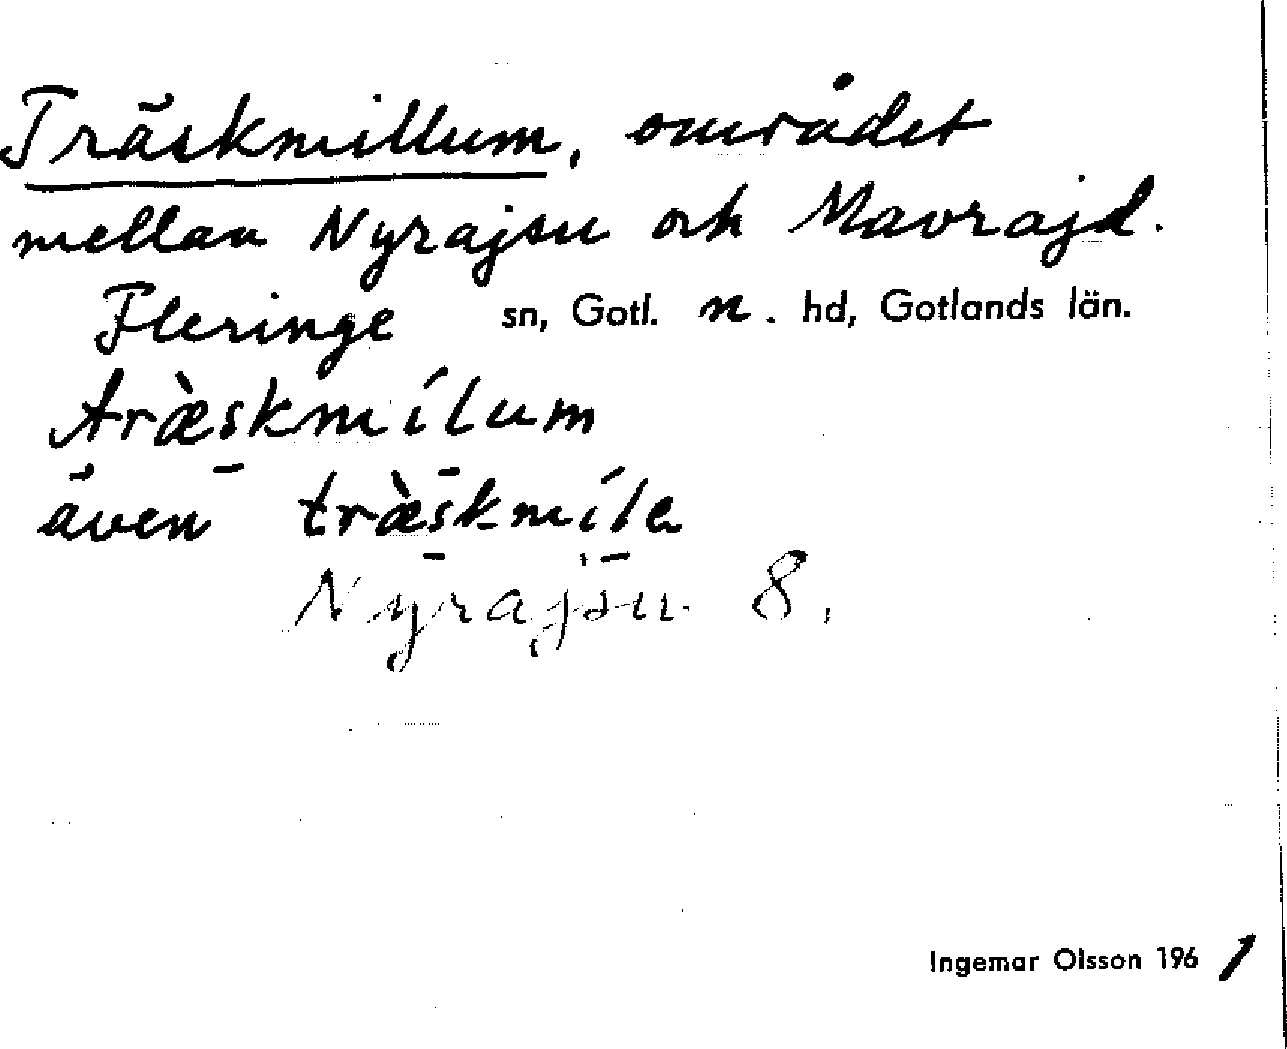 Träskmillum, området
mellan Nyrajsu och Mavrajd.
Fleringe sn, Gotl. n. hd, Gotlands län.
træ̀skmílum
även træ̀skmíla
Nyrajsu 8.
Ingemar Olsson 1961